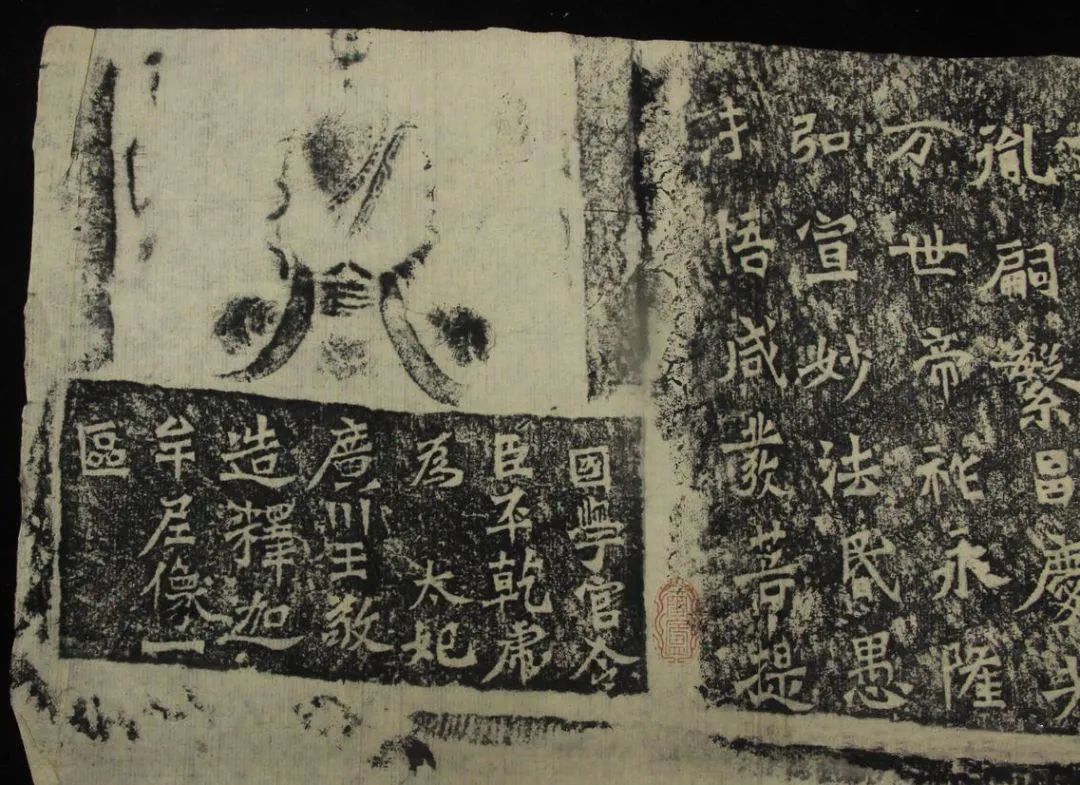 胤嗣繁昌慶光
万世帝祚永隆
弘宣妙法昬愚
未悟咸發菩提
國學官令
臣平乾虎
為 太妃
廣川王敬
造釋加
牟尼像一
區